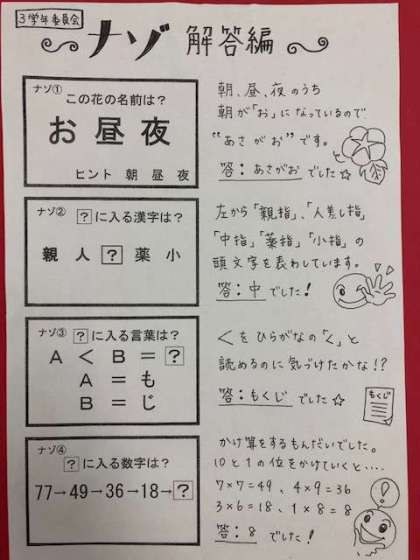 3学年委員会
ナゾ 解答編
ナゾ①
この花の名前は？
お 昼 夜
ヒント 朝 昼 夜
朝、昼、夜のうち
朝が「お」になっているので
“あさがお”です。
答：あさがおでした☆
ナゾ②
？に入る漢字は？
親 人 ？ 薬 小
左から「親指」、「人差し指」
「中指」「薬指」「小指」の
頭文字を表わしています。
答：中でした！
ナゾ③
？に入る言葉は？
A ＜ B ＝ ？
A ＝ も
B ＝ じ
＜をひらがなの「く」と
読めるのに気づけたかな！？
答：もくじでした☆
もくじ
ナゾ④
？に入る数字は？
77→49→36→18→？
かけ算をするもんだいでした。
10と1の位をかけていくと・・・・
7×7=49、4×9=36
3×6=18、1×8=8
答：8でした！
！